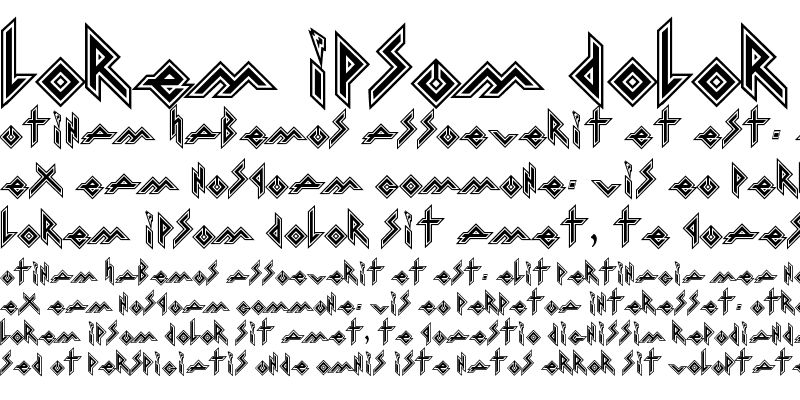 Lorem ipsum dolor
utinam habemus assueverit et est. 
ex eam nusquam commune. vis eu per
Lorem ipsum dolor sit amet, te quaes
utinam habemus assueverit et est. elit pertinacia mea
ex eam nusquam commune. vis eu perpetua interesset. utr
Lorem ipsum dolor sit amet, te quaestio dignissim repudianda
Sed ut perspiciatis unde omnis iste natus error sit voluptate